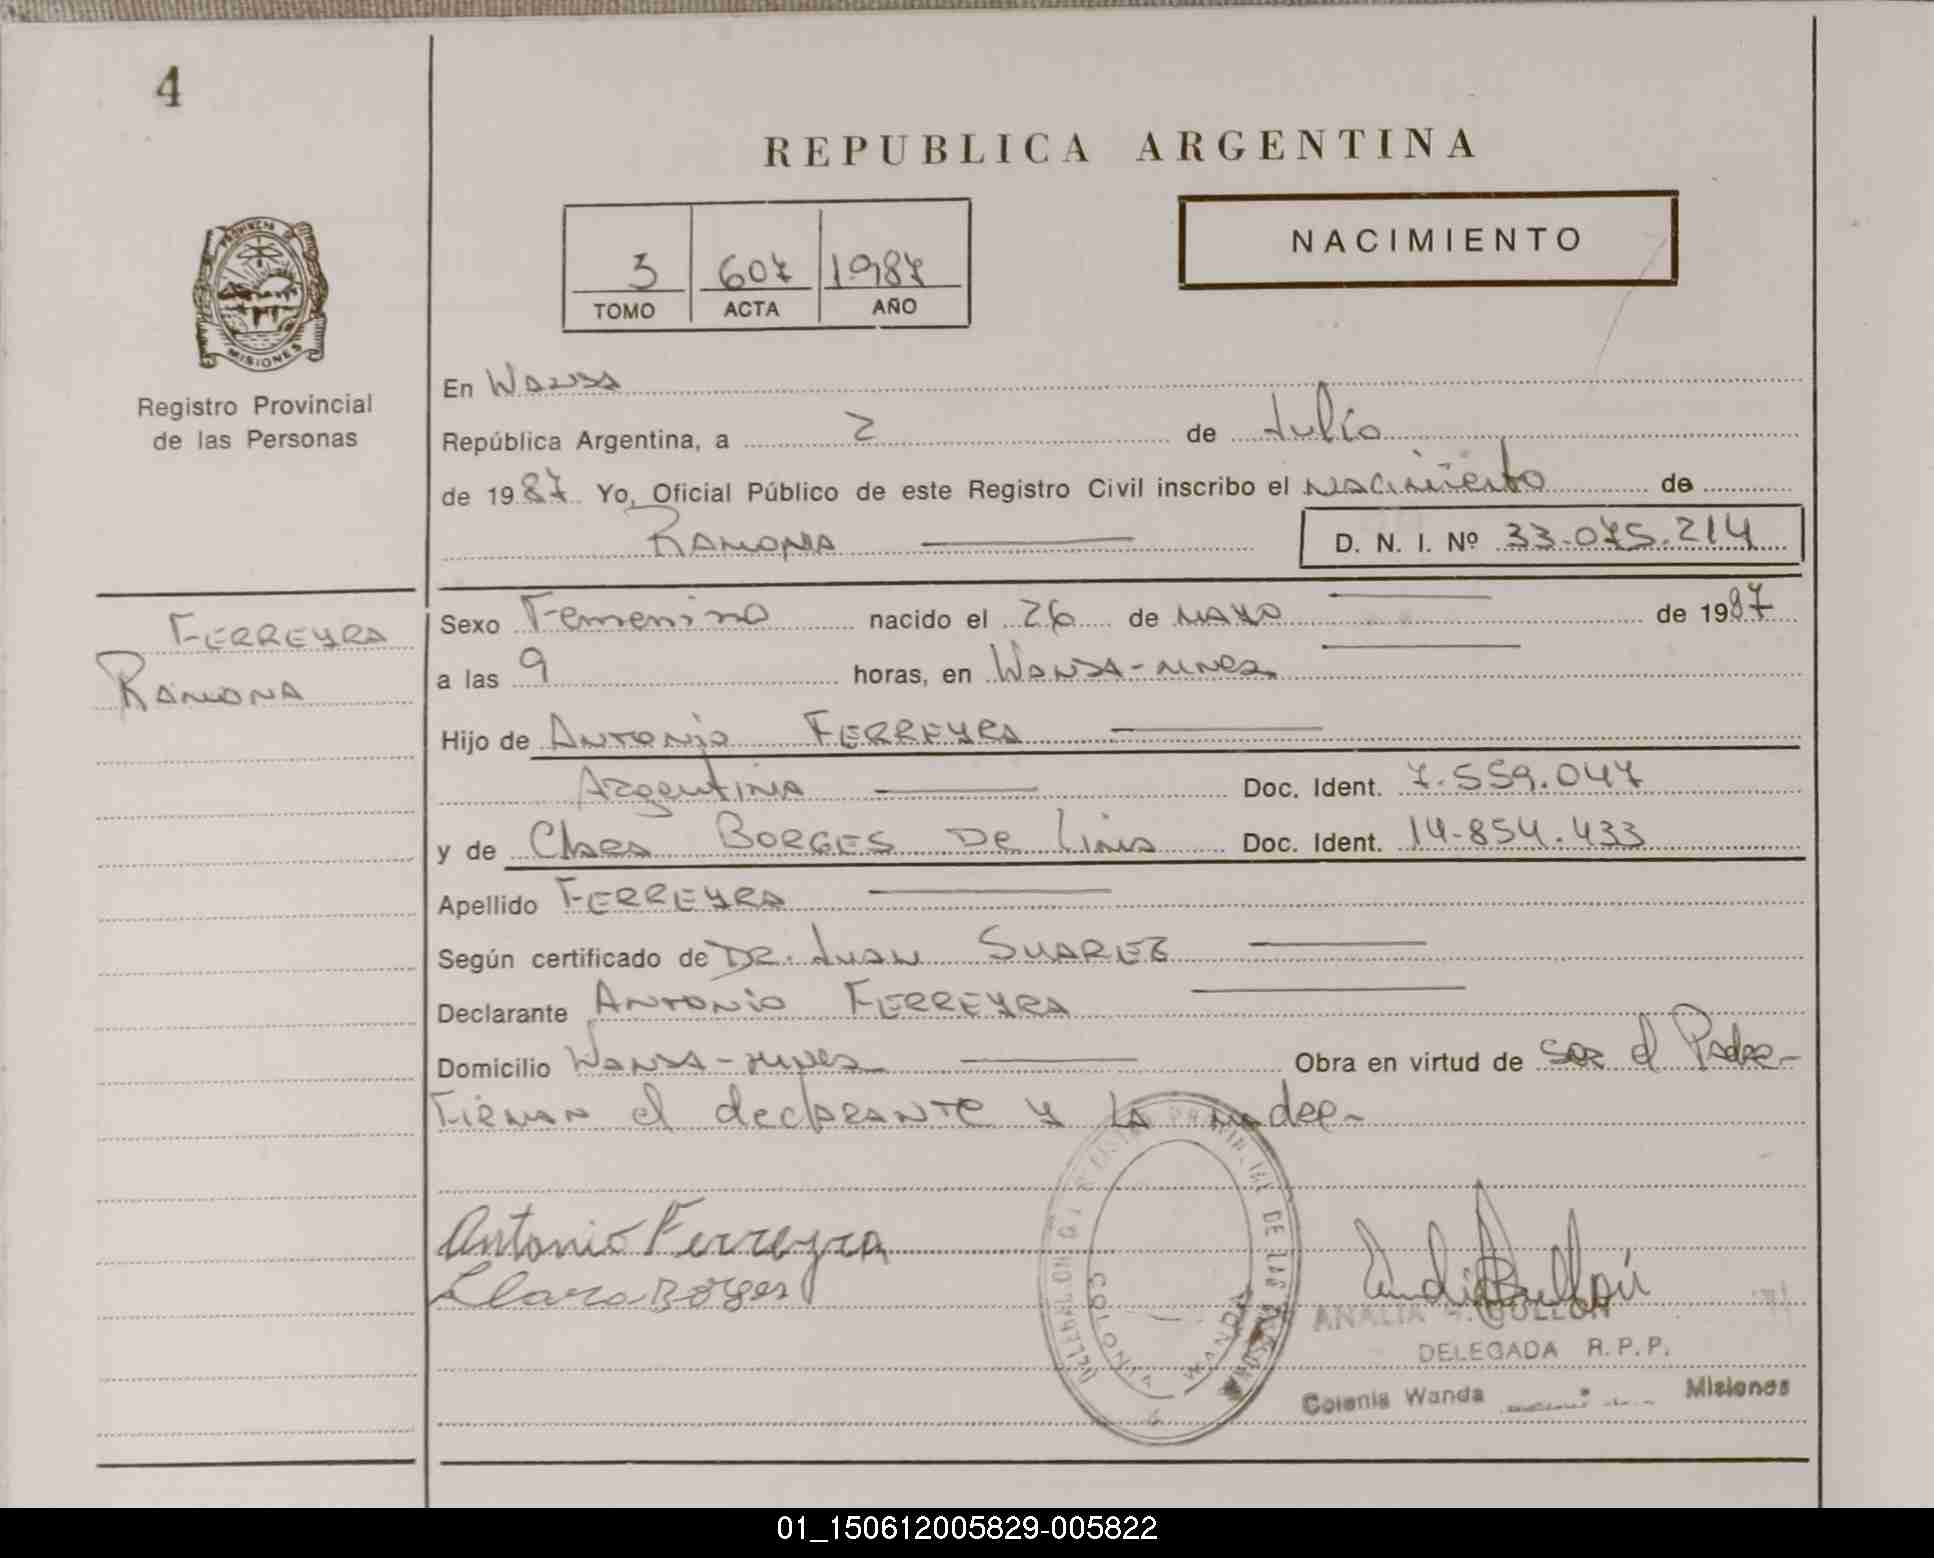 4
REPUBLICA ARGENTINA
PROVINCIA DE MISIONES
Registro Provincial
de las Personas
3 607 1987
TOMO ACTA AÑO
NACIMIENTO
En Wanda
República Argentina, a 2 de Julio
de 1987 Yo, Oficial Público de este Registro Civil inscribo el nacimiento de
Ramona D. N. I. Nº 33.075.214
FERREYRA
Ramona
Sexo Femenino nacido el 26 de mayo de 1987
a las 9 horas, en Wanda-mnes
Hijo de Antonio FERREYRA
Argentina Doc. Ident. 7.559.047
y de Clara BORGES De Lima Doc. Ident. 14.854.433
Apellido FERREYRA
Según certificado de DR. Juan SUAREZ
Declarante Antonio FERREYRA
Domicilio Wanda-mnes Obra en virtud de ser el Padre-
Firman el declarante y la madre-
Antonio Ferreyra
Clara Borges
COLONIA WANDA
ANALIA BULLON
DELEGADA R.P.P.
Colonia Wanda Misiones
01_150612005829-005822